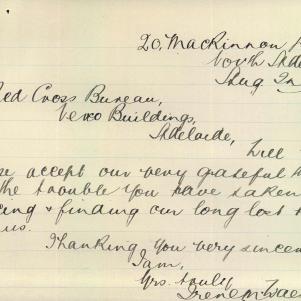 20, MacKinnon P
North Adel
Aug 2n
Red Cross Bureau,
Verco Buildings,
Adelaide,
Will
se accept our very grateful th
the trouble you have taken
cing & finding our long lost
us.
Thanking you very sincer
I am,
Yrs truly
Irene M